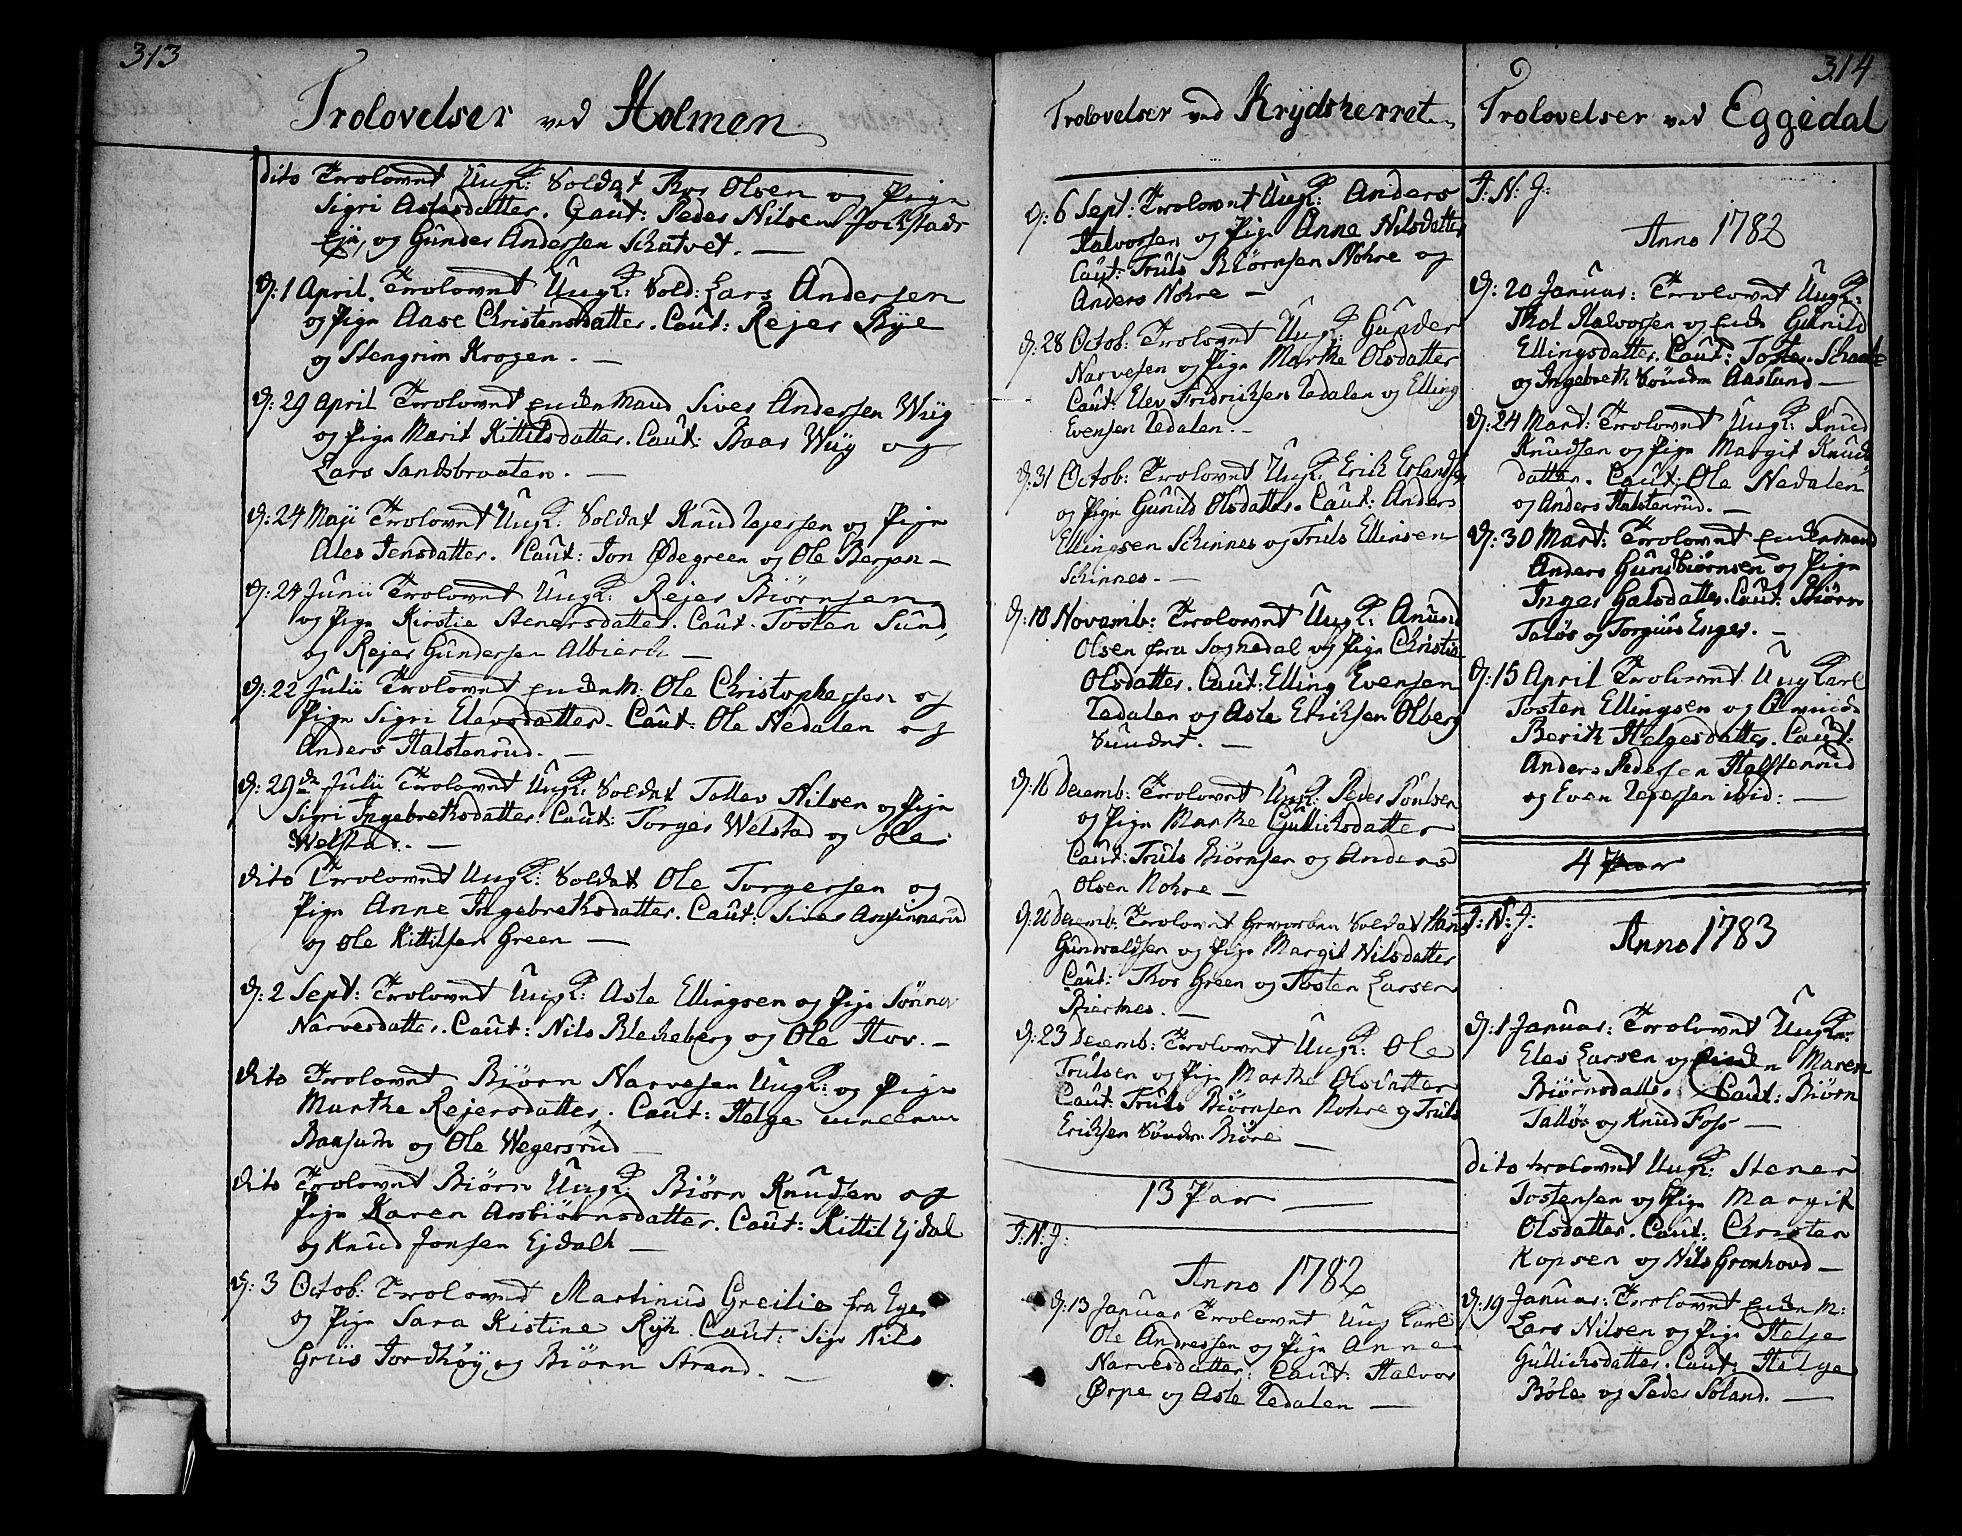 313
Trolovelser ved Holmen
dito Trolovet Ungk: Soldat Thor Olsen og Pige
Sigri Aslesdatter. Caut: Peder Nilsen Jockstad
Eje, og Gunder Andersen Schatvet. —
D: 1 April. Trolovet Ungk: Sold: Lars Andersen
og Pige Aase Christensdatter. Caut: Rejer Bye
og Stengrim Krogen. —
D: 29 April Trolovet Enckemand Siver Andersen Wiig
og Pige Marit Kittilsdatter. Caut: Baar Wiig og
Lars Sandsbraaten. —
D: 24 Maji Trolovet Ungk: Soldat Knud Jepersen og Pige
Ales Jensdatter. Caut: Jon Ødegreen og Ole Berjan —
D: 24 Junii Trolovet Ungk: Rejer Biørnsen
og Pige Kirstie Stenersdatter. Caut. Tosten Sund,
og Rejer Gundersen Albierk —
D: 22 Julii Trolovet EnckeM: Ole Christophersen og
Pige Sigri Elevsdatter. Caut: Ole Nedalen og
Anders Halstenrud. —
D: 29de Julii Trolovet Ungk: Soldat Tollev Nilsen og Pige
Sigri Ingebrethsdatter. Caut: Torger Welstad og Ole
Welstad. —
dito Trolovet Ungk: Soldat Ole Torgersen og
Pige Anne Ingebrethsdatter. Caut: Siver
og Ole Kittilsen Green —
D: 2 Sept: Trolovet Ungk: Asle Ellingsen og Pige Sønnev
Narvesdatter. Caut: Nils Blekeberg og Ole Hov. —
dito Trolovet Bjørn Narvesen Ungk: og Pige
Marthe Rejersdatter. Caut: Helge
Baasum og Ole Wegersrud —
dito Trolovet Biørn Ungk: Biørn Knudsen og
Pige Karen Asbiørnsdatter. Caut: Kittil Ejdal
og Knud Jonsen Ejdalh —
D: 3 Octob: Trolovet Martinus Greilie fra Eger
og Pige Sara Kistine Ryh. Caut: Sigr Nils
Griis Jordhøy og Biørn Strand. —
314
Trolovelser ved Krydsherret
D: 6 Sept: Trolovet Ungk: Anders
Halvorsen og Pige Anne Nilsdatter
Caut: Truls Biørnsen Nohre og
Anders Nohre —
D: 28 Octob: Trolovet Ungk: Gunder
Narvesen og Pige Marthe Olsdatter
Caut: Elev Fridrichsen Ledalen og Elling
Evensen Ledalen. —
D: 31 Octob: Trolovet Ungk: Erik Erlandsen
og Pige Gunild Olsdatter. Caut: Anders
Ellingsen Schinnes og Truls Ellinsen
Schinnes. —
D: 18 Novemb: Trolovet Ungk: Anund
Olsen fra Sognedal og Pige Christie
Olsdatter. Caut: Elling Evensen
Ledalen og Asle Eriksen Olberg
Sundet. —
D: 16 Decemb: Trolovet Ungk: Peder Poulsen
og Pige Marthe Gullichsdatter
Caut: Truls Biørnsen og Anders
Olsen Nohre —
D: 26 Decemb: Trolovet Gevorben Soldat Hans
Gundvaldsen og Pige Margit Nilsdatter
Caut: Thor Green og Tosten Larsen
Bierkes. —
D: 23 Decemb: Trolovet Ungk: Ole
Trulsen og Pige Marthe Olsdatter
Caut: Truls Biørnsen Nohre og Truls
Eriksen Søndre Biøre —
13 Par —
I: N: J:
Anno 1782
D: 13 Januar Trolovet Ung Karl
Ole Andressen og Pige Anne
Narvesdatter: Caut: Halvor
Ørpe og Asle Ledalen —
Trolovelser ved Eggedal
I: N: J:
Anno 1782
D: 20 Januar: Trolovet Ungk:
Thol Halvorsen og Enke Gunild
Ellingsdatter. Caut: Toster Schaale
og Ingebreth Søndre Aasland —
D: 24 Mart: Trolovet Ungk: Knud
Knudsen og Pige Margit Knuds
datter. Caut: Ole Nedalen
og Anders Halstenrud. —
D: 30 Mart: Trolovet Enckemand
Anders Gunbiørnsen og Pige
Inger Galsdatter. Caut: Biørn
Taløs og Torgius Enger. —
D: 15 April Trolovet Ung Karl
Tosten Ellingsen og
Berith Helgesdatter. Caut:
Anders Pedersen Halstenrud
og Even Jepersen ibid: —
4 Par
I: N: J:
Anno 1783
D: 1 Januar: Trolovet Ungk:
Elev Larsen og Enken Maren
Biørnsdatter. Caut: Biørn
Talløs og Knud Foss —
dito trolovet Ungk: Stener
Tostensen og Pige Margit
Olsdatter. Caut: Christen
Kopsen og Nils Gronhovd —
D: 19 Januar: Trolovet Encke M:
Lars Nilsen og Pige Helge
Gullichsdatter. Caut: Helge
Bøle og Peder Soland. —